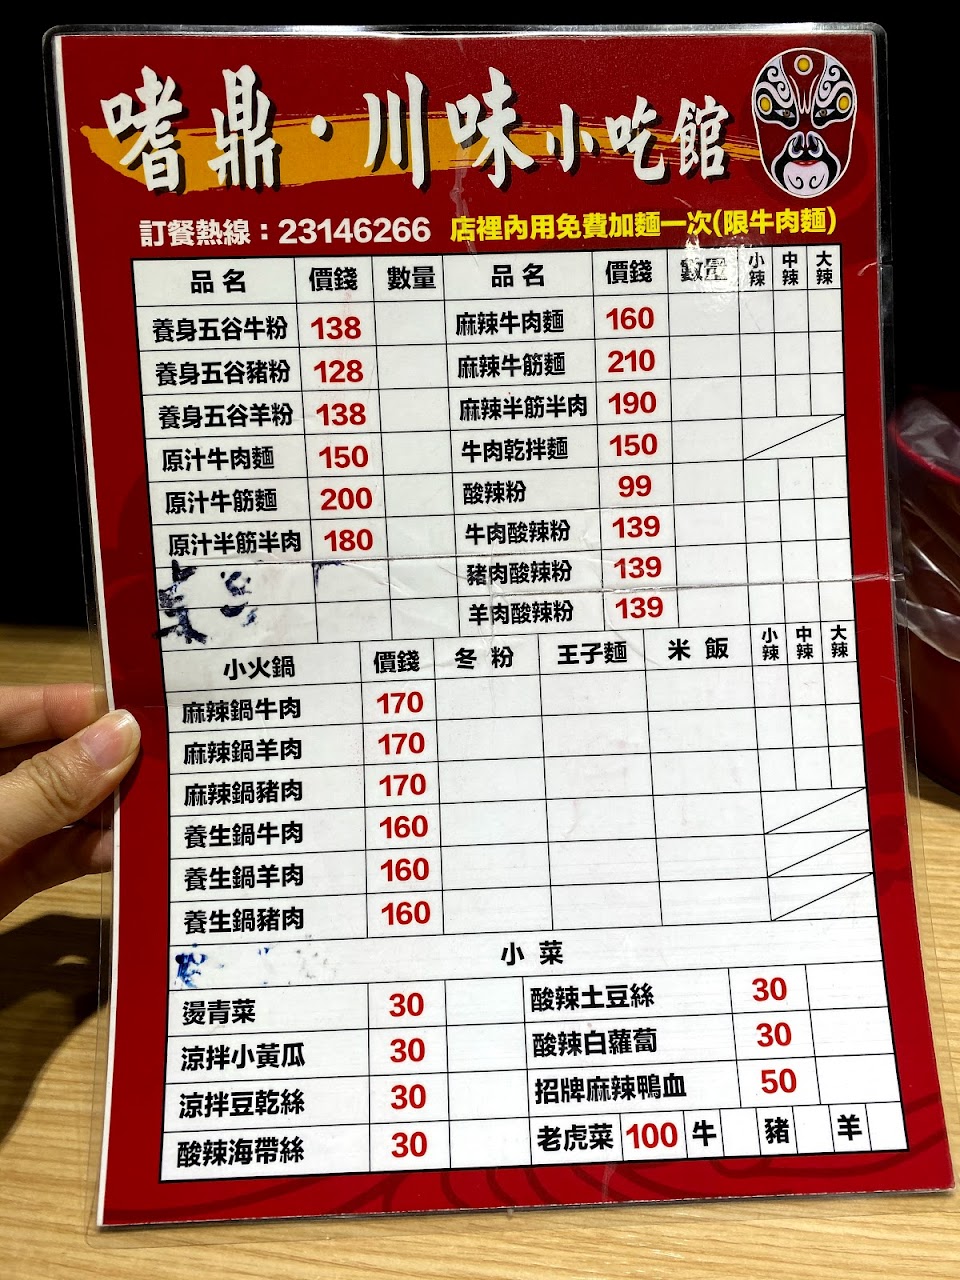 嗜鼎·川味小吃館
訂餐熱線：23146266 店裡內用免費加麵一次(限牛肉麵)
品名 價錢 數量 品名 價錢 數量 小辣 中辣 大辣
養身五谷牛粉 138 麻辣牛肉麵 160
養身五谷豬粉 128 麻辣牛筋麵 210
養身五谷羊粉 138 麻辣半筋半肉 190
原汁牛肉麵 150 牛肉乾拌麵 150
原汁牛筋麵 200 酸辣粉 99
原汁半筋半肉 180 牛肉酸辣粉 139
豬肉酸辣粉 139
羊肉酸辣粉 139
小火鍋 價錢 冬粉 王子麵 米飯 小辣 中辣 大辣
麻辣鍋牛肉 170
麻辣鍋羊肉 170
麻辣鍋豬肉 170
養生鍋牛肉 160
養生鍋羊肉 160
養生鍋豬肉 160
小菜
燙青菜 30 酸辣土豆絲 30
涼拌小黃瓜 30 酸辣白蘿蔔 30
涼拌豆乾絲 30 招牌麻辣鴨血 50
酸辣海帶絲 30 老虎菜 100 牛 豬 羊